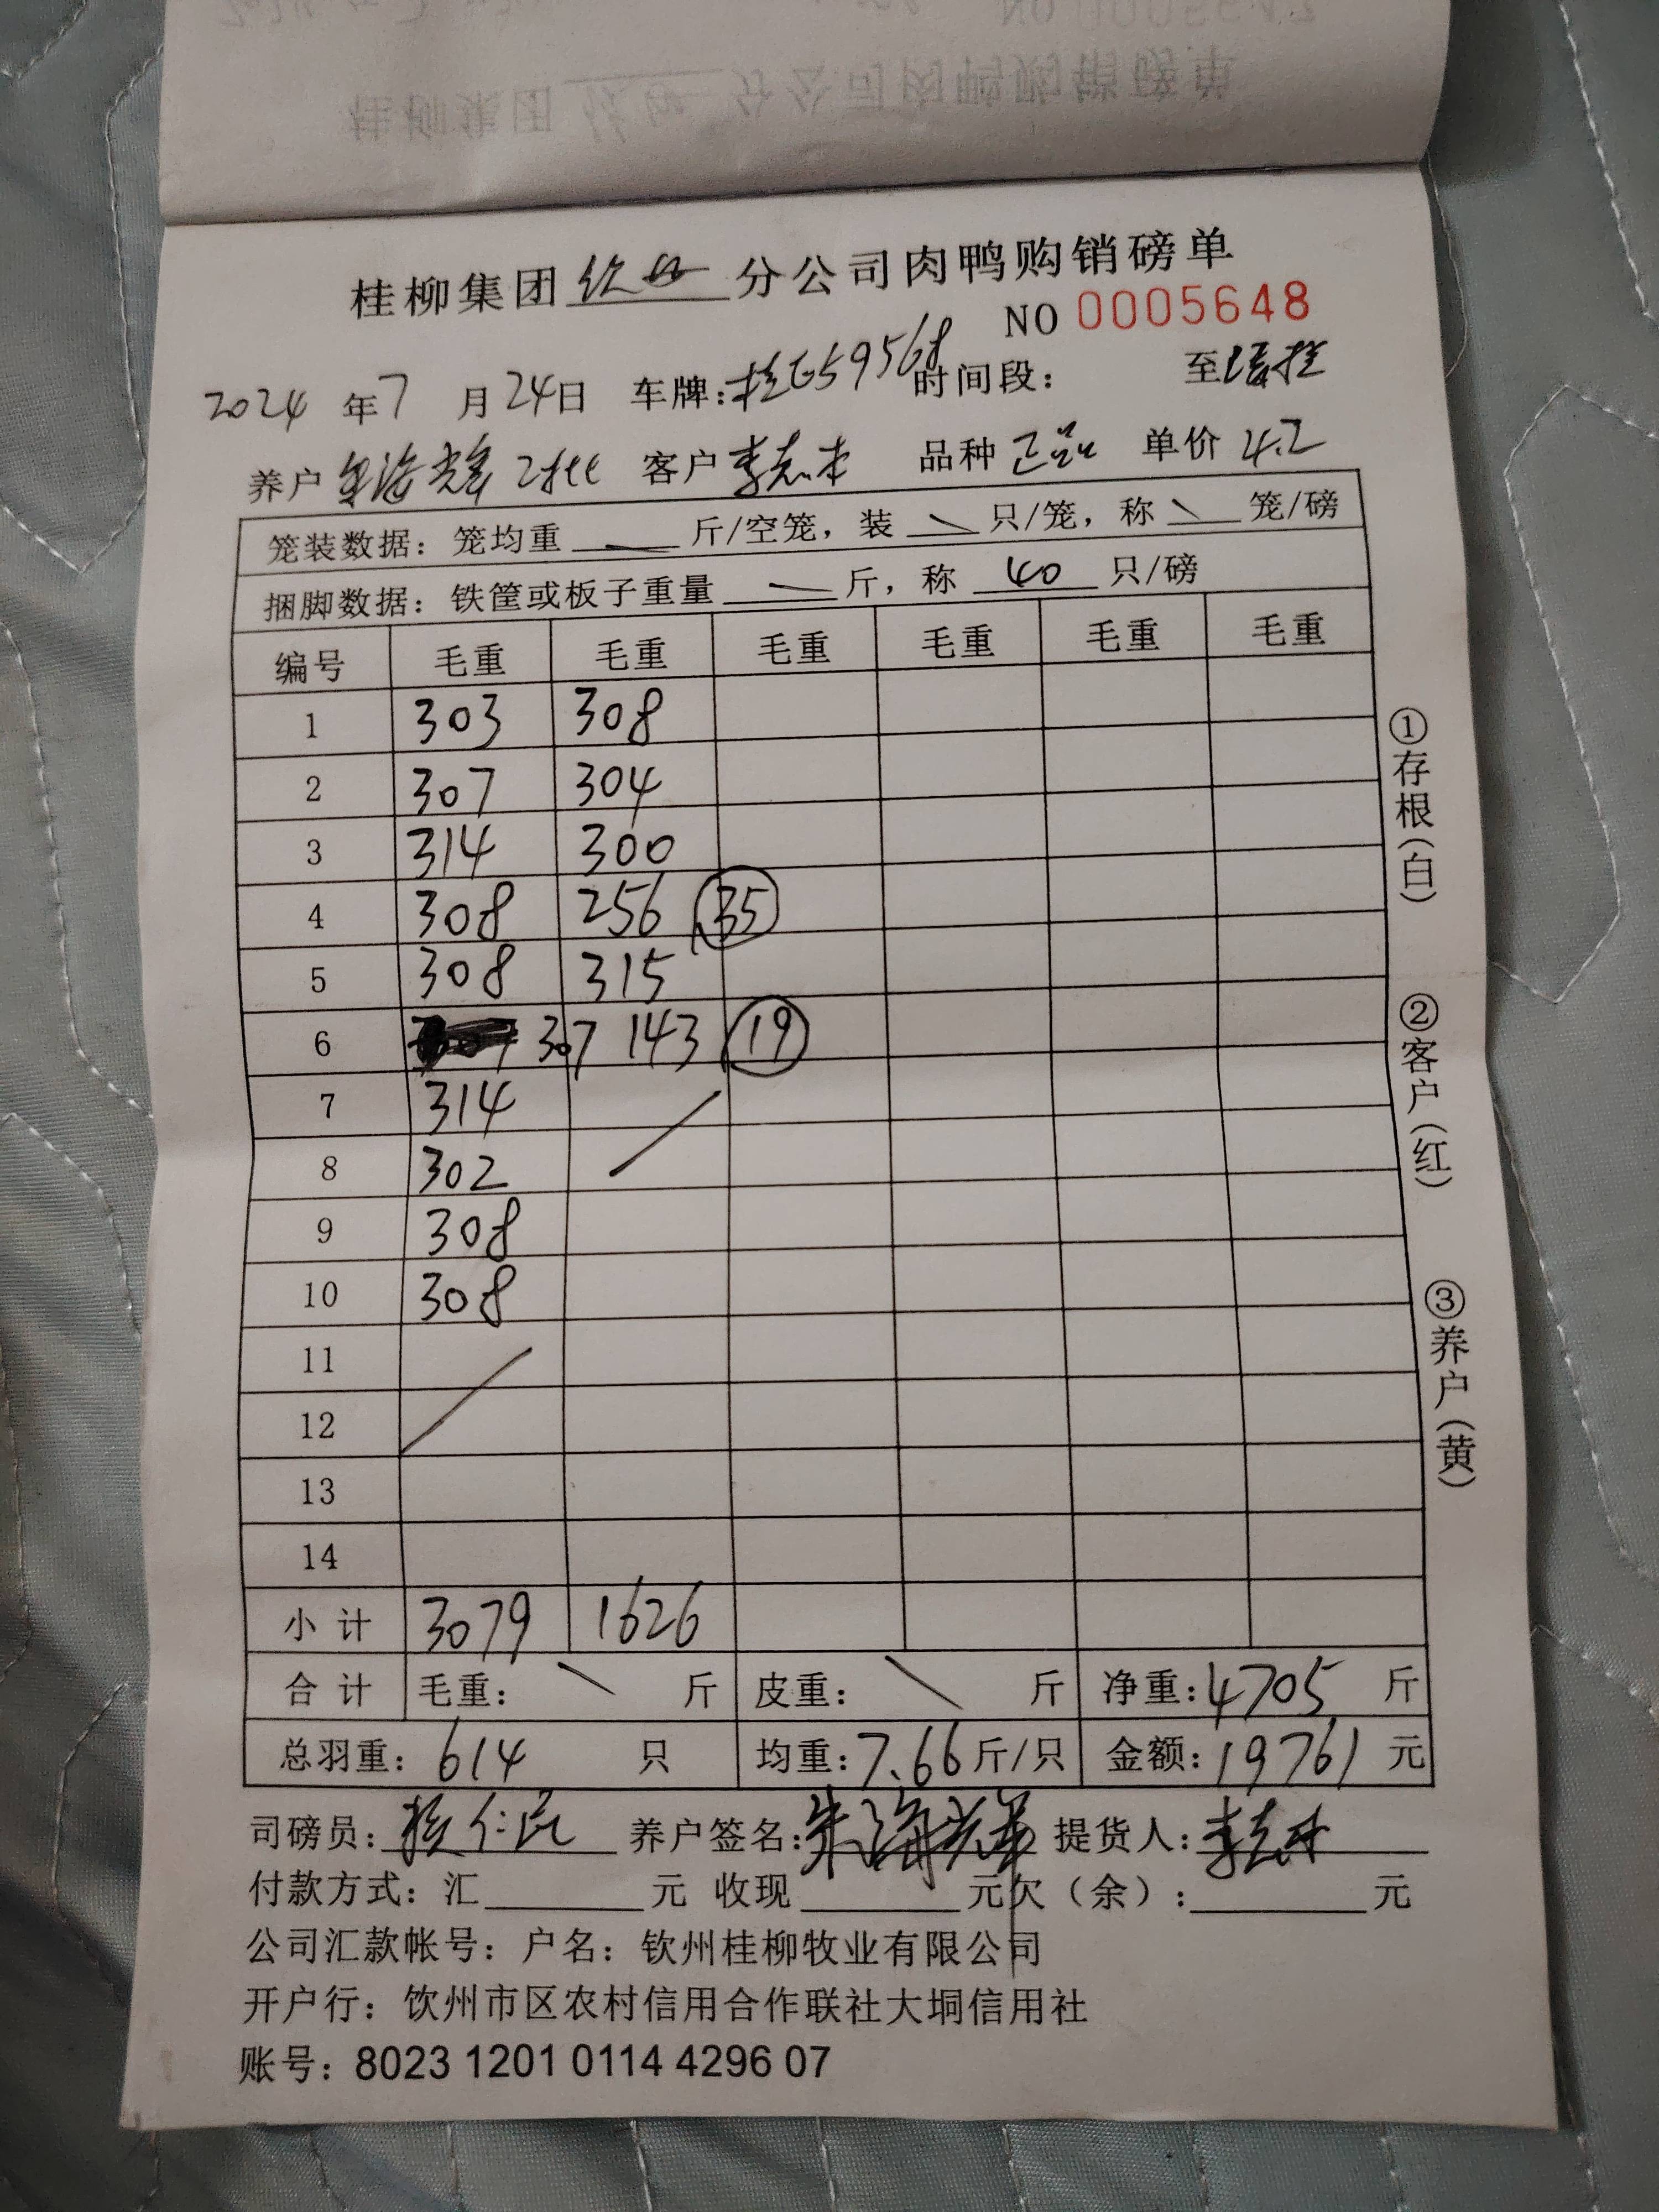 桂柳集团 钦州 分公司肉鸭购销磅单
NO 0005648
2024 年 7 月 24 日 车牌: 桂E59568 时间段: 至
养户 朱海光 2批 客户 李志本 品种 正品 单价 4.2
笼装数据: 笼均重 斤/空笼, 装 只/笼, 称 笼/磅
捆脚数据: 铁筐或板子重量 斤, 称 40 只/磅
编号 毛重 毛重 毛重 毛重 毛重 毛重
1 303 308
2 307 304
3 314 300
4 308 256 35
5 308 315
6 307 143 19
7 314
8 302
9 308
10 308
11
12
13
14
小计 3079 1626
合计 毛重: 斤 皮重: 斤 净重: 4705 斤
总羽重: 614 只 均重: 7.66 斤/只 金额: 19761 元
司磅员: 养户签名: 提货人: 李志本
付款方式: 汇 元 收现 元欠(余): 元
公司汇款帐号: 户名: 钦州桂柳牧业有限公司
开户行: 钦州市区农村信用合作联社大垌信用社
账号: 8023 1201 0114 4296 07
①存根(白)
②客户(红)
③养户(黄)